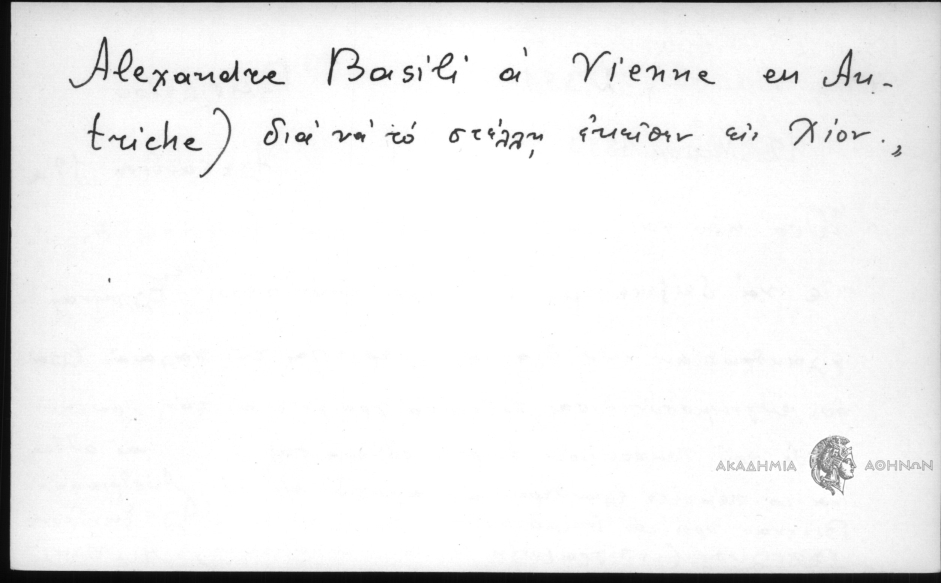 Alexandre Basili à Vienne en Au-
triche) διὰ νὰ τό στέλλῃ ἐκεῖθεν εἰς Χίον.„
ΑΚΑΔΗΜΙΑ ΑΘΗΝΩΝ